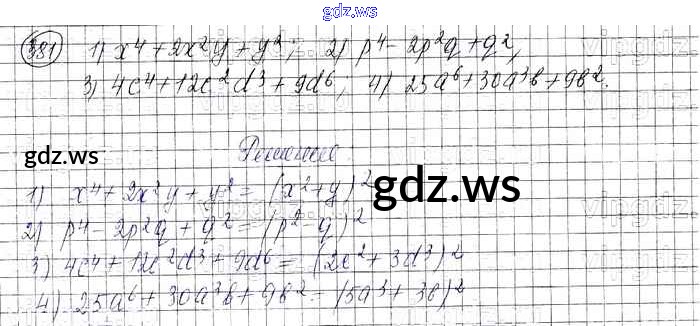 gdz.ws
381 1) x⁴ + 2x²y + y²; 2) p⁴ - 2p²q + q²,
3) 4c⁴ + 12c²d³ + 9d⁶; 4) 25a⁶ + 30a³b + 9b².
gdz.ws Решение
1) x⁴ + 2x²y + y² = (x² + y)²
gdz.ws
2) p⁴ - 2p²q + q² = (p² - q)²
3) 4c⁴ + 12c²d³ + 9d⁶ = (2c² + 3d³)²
4) 25a⁶ + 30a³b + 9b² = (5a³ + 3b)²